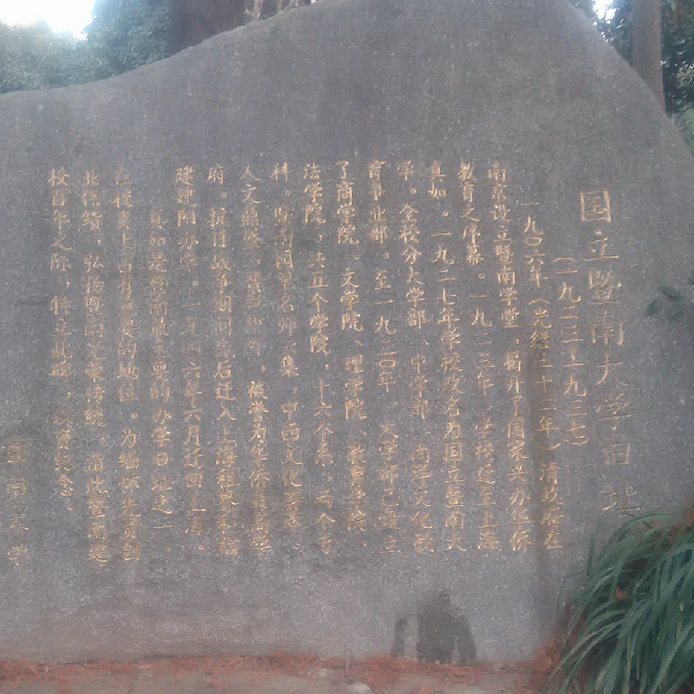 国立暨南大学旧址
（一九二三—一九三七）
一九〇六年（光绪三十二年）清政府在
南京设立暨南学堂，揭开了国家兴办华侨
教育之序幕。一九二三年，学校迁至上海
真如。一九二七年学校改名为国立暨南大
学。全校分大学部、中学部、南洋文化
育事业部。至一九三〇年，大学部已设立
了商学院、文学院、理学院、教育学院、
法学院，共五个学院，十六个系，两个专
科。暨南园里名师云集，中西文化
人文鼎盛，被誉为华侨最高
府。抗日战争期间先后迁入上海租界和福
建建阳办学。一九四六年六月迁回上海。
真如是暨南最主要的办学旧址之一，
在校史上占有重要的地位。为缅怀先贤创
业伟绩，弘扬暨南光荣传统，值此暨南建
校百年之际，特立此碑，以资纪念。
暨南大学